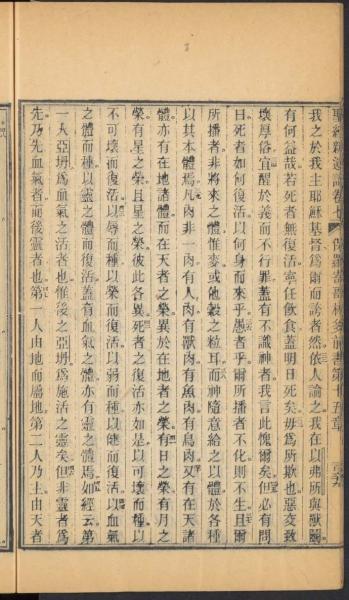 聖經新遺詔卷七　保羅寄哥林多前書第十五章
我之於我主耶穌基督爲爾而誇者然依人論之我在以弗所與獸鬭
有何益哉若死者無復活寧任飲食蓋明日死矣毋爲所欺也惡交致
壞厚俗宜醒於義而不行罪蓋有不識神者我言此愧爾矣但必有問
曰死者如何復活以何身而來乎愚者乎爾所播者不化則不生且爾
所播者非將來之體惟麥或他穀之粒耳而神隨意給之以體於各種
以其本體焉凡肉非一肉有人肉有獸肉有魚肉有鳥肉又有在天諸
體亦有在地諸體而在天者之榮異於在地者之榮有日之榮有月之
榮有星之榮且星之榮彼此各異死者之復活亦如是以可壞而種以
不可壞而復活以辱而種以榮而復活以弱而種以能而復活以血氣
之體而種以靈之體而復活蓋有血氣之體亦有靈之體焉如經云第
一人亞坍爲血氣之活者也惟後之亞坍爲施活之靈矣但非靈者爲
先乃先血氣者而後靈者也第一人由地而屬地第二人乃主由天者